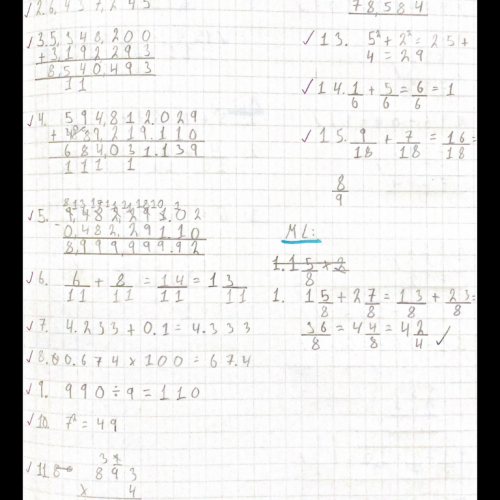 3. 5,348,200
+ 3,192,293
8,540,493
11
4. 594,812.029
219.110
684,031.139
111 1
5.
0,482,291.10
8,999,999.92
6. 6/11 + 8/11 = 14/11 = 1 3/11
7. 4.233 + 0.1 = 4.333
8. 0.674 × 100 = 67.4
9. 990 ÷ 9 = 110
10. 7² = 49
11.
893
× 4
78,584
13. 5² + 2² = 2·5 +
4 = 29
14. 1/6 + 5/6 = 6/6 = 1
15. 9/18 + 7/18 = 16/18 =
8/9
ML:
1. 1 5/8 + 2 7/8 = 13/8 + 23/8 =
36/8 = 4 4/8 = 4 2/4